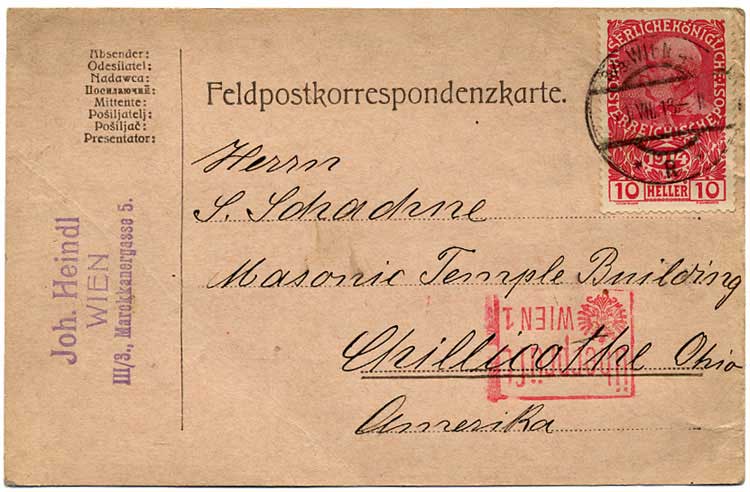 Absender:
Odesílatel:
Nadawca:
Посилаючий:
Mittente:
Pošiljatelj:
Pošiljač:
Presentator:
Feldpostkorrespondenzkarte.
Joh. Heindl
WIEN
III/3., Marokkanergasse 5.
Herrn
S. Schachne
Masonic Temple Building
Chillicothe Ohio
Amerika
WIEN
VII. 15
KAISERLICHEKÖNIGLICHE
ÖSTERREICHISCHE POST
1914
10 HELLER 10
Überprüft
WIEN 1